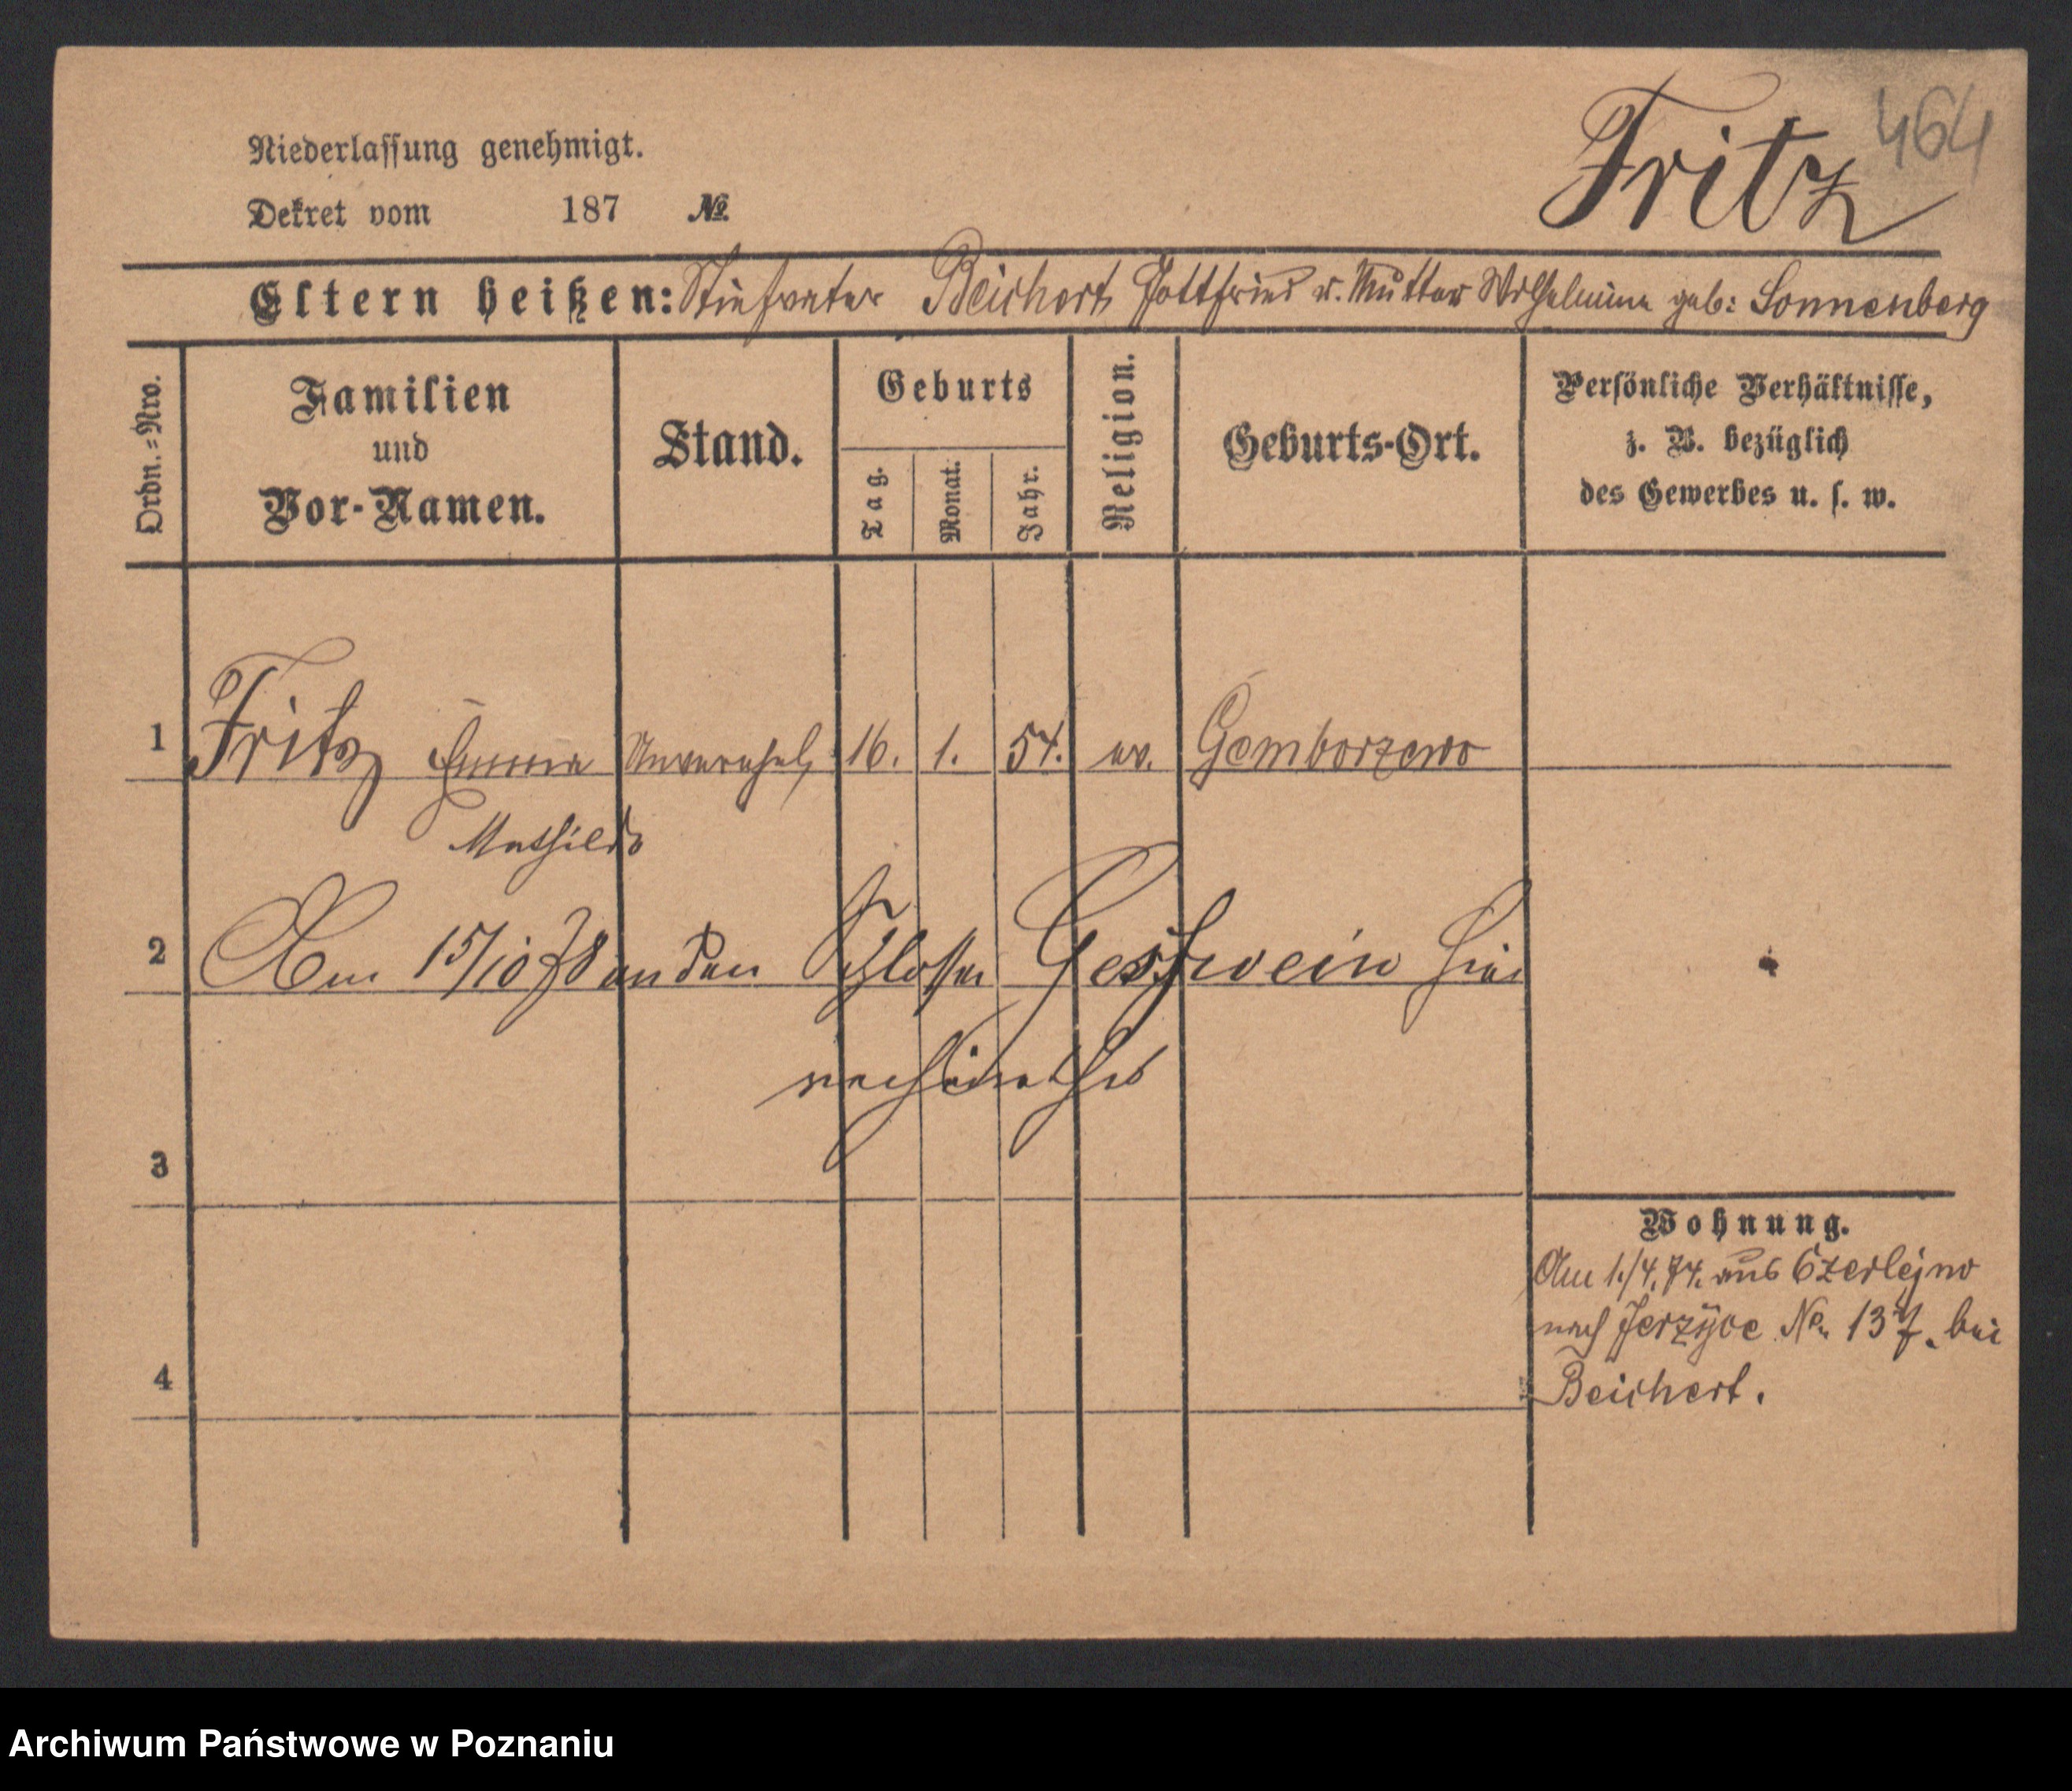 464
Fritz
Niederlassung genehmigt.
Dekret vom 187 №
Eltern heißen: Stiefvater Beichert Gottfried u. Mutter Wilhelmine geb: Sonnenberg
Ordn.=Nro.
Familien
und
Vor-Namen.
Stand.
Geburts
Tag.
Monat.
Jahr.
Religion.
Geburts-Ort.
Persönliche Verhältnisse,
z. B. bezüglich
des Gewerbes u. s. w.
1 Fritz Emma Unverehel. 16. 1. 54. ev. Gomborzewo
Mathilde
2 Am 15/10 78 an den Schlosser hier
verheirathet
3
4
Wohnung.
Am 1./4. 74. aus Czerlejno
nach Jerzyce No. 137. bei
Beichert.
Archiwum Państwowe w Poznaniu